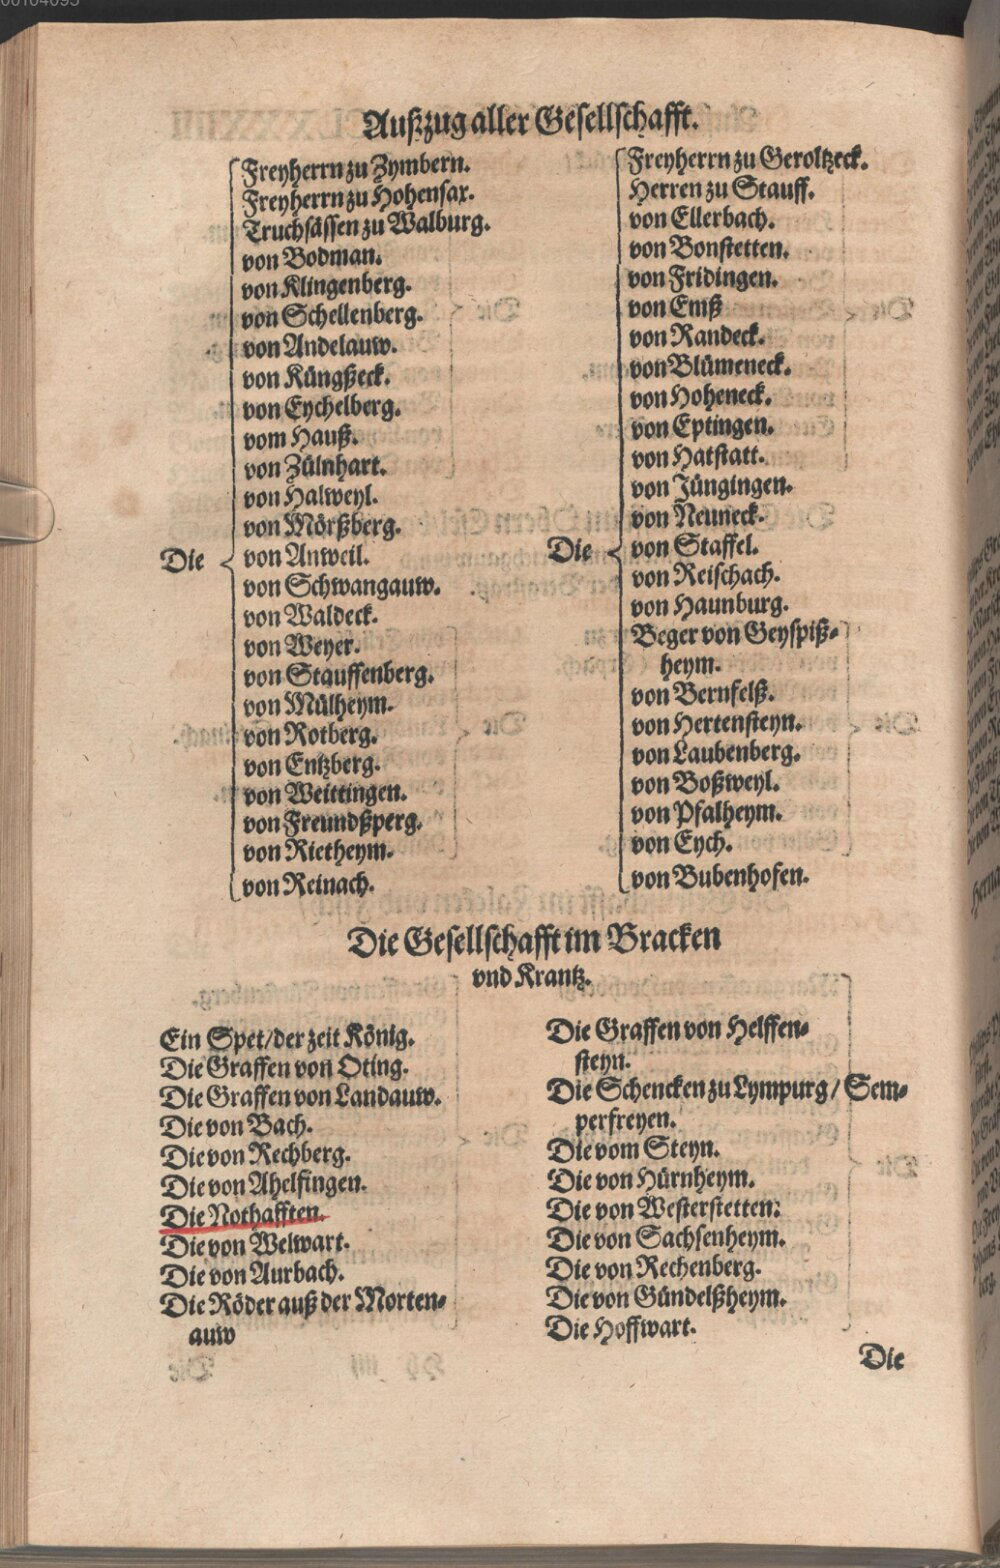 Außzug aller Gesellschafft.
Freyherrn zu Zymbern.
Freyherrn zu Hohensax.
Truchsässen zu Walburg.
von Bodman.
von Klingenberg.
von Schellenberg.
von Andelauw.
von Küngßeck.
von Eychelberg.
vom Hauß.
von Zülnhart.
von Halweyl.
von Mörßberg.
Die von Anweil.
von Schwangauw.
von Waldeck.
von Weyer.
von Stauffenberg.
von Mülheym.
von Rotberg.
von Entzberg.
von Weittingen.
von Freundßperg.
von Rietheym.
von Reinach.
Freyherrn zu Geroltzeck.
Herren zu Stauff.
von Ellerbach.
von Bonstetten.
von Fridingen.
von Emß
von Randeck.
von Blümeneck.
von Hoheneck.
von Eptingen.
von Hatstatt.
von Jüngingen.
von Neuneck.
Die von Staffel.
von Reischach.
von Haunburg.
Beger von Geyspiß-
heym.
von Bernfelß.
von Hertensteyn.
von Laubenberg.
von Boßweyl.
von Pfalheym.
von Eych.
von Bubenhofen.
Die Gesellschafft im Bracken
vnd Krantz.
Ein Spet/der zeit König.
Die Graffen von Oting.
Die Graffen von Landauw.
Die von Bach.
Die von Rechberg.
Die von Ahelfingen.
Die Nothafften.
Die von Welwart.
Die von Aurbach.
Die Röder auß der Morten-
auw
Die Graffen von Helffen-
steyn.
Die Schencken zu Lympurg/ Sem-
perfreyen.
Die vom Steyn.
Die von Hürnheym.
Die von Westerstetten.
Die von Sachsenheym.
Die von Rechenberg.
Die von Gündelßheym.
Die Hoffwart.
Die